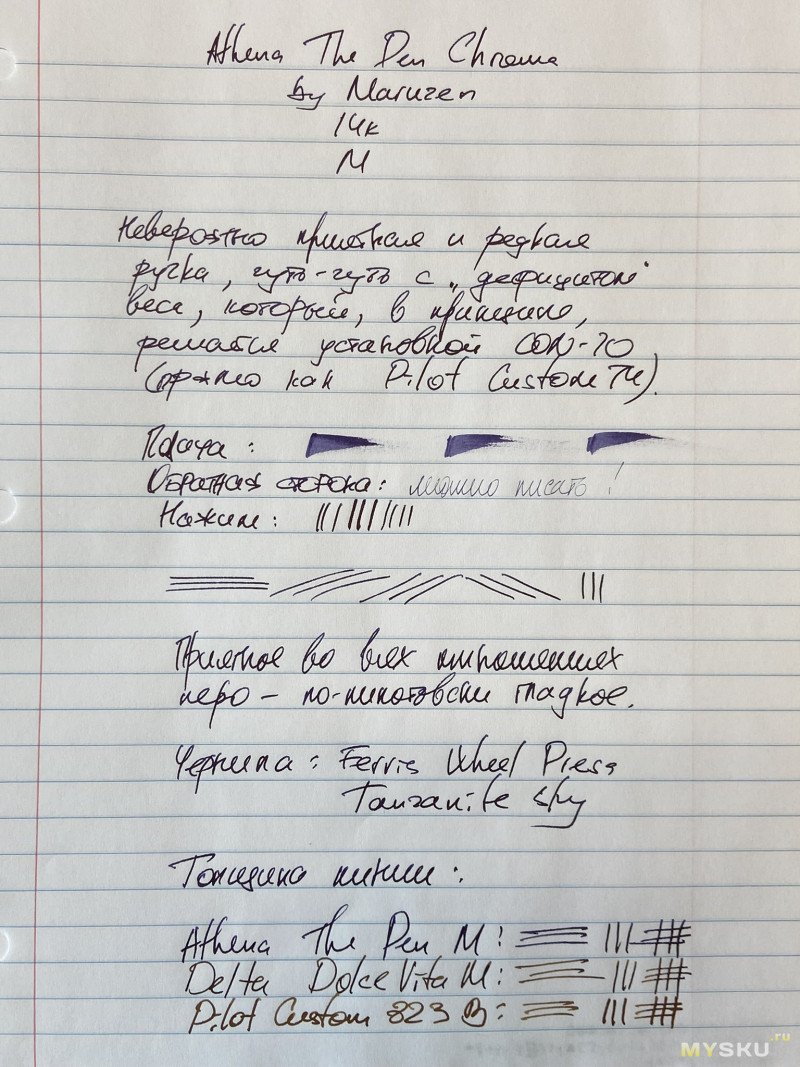 Athena The Pen Chroma
by Maruzen
14k
M
Невероятно приятная и редкая
ручка, чуть-чуть с „дефицитом"
веса, который, в принципе,
решается установкой CON-70
(прямо как Pilot Custom 74).
Подача:
Обратная сторона: можно писать!
Нажим:
Приятное во всех отношениях
перо – по-пилотовски гладкое.
Чернила: Ferris Wheel Press
Tanzanite Sky
Толщина линии:
Athena The Pen M:
Delta Dolce Vita M:
Pilot Custom 823 B:
MYSKU.ru